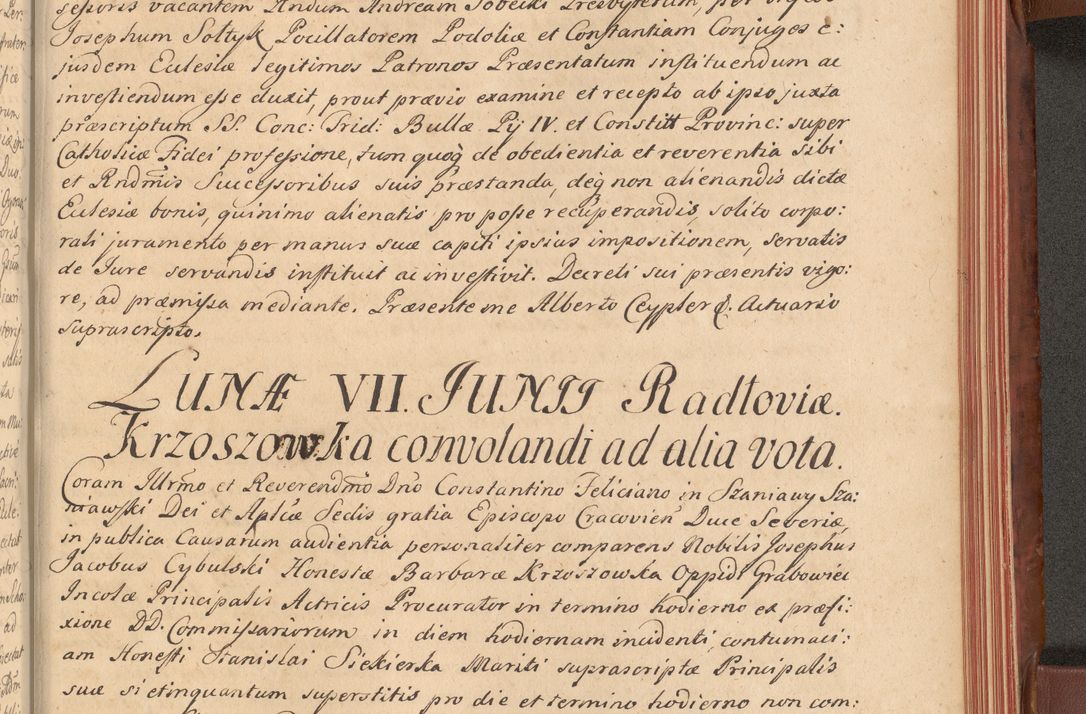 sessoris vacantem Andum Andream Sobecki Presbyterum, per
Josephum Sołtyk Pocillatorem Podoliæ et Constantiam Conjuges e:
jusdem Eclesiæ legitimos Patronos Præsentatum instituendum ac
investiendum esse duxit, prout prævio examine et recepto ab ipso juxta
præscriptum SS. Conc: Trid: Bullæ Pij IV. et Constitt Provinc: super
Catholicæ Fidei professione, tum quoq de obedientia et reverentia Sibi
et Rndmis Successoribus suis præstanda, deq non alienandis dictæ
Eclesiæ bonis, quinimo alienatis pro posse recuperandis, solito corpo:
rali juramento per manus suæ capiti ipsius impositionem, servatis
de Jure servandis instituit ac investivit. Decreti sui præsentis vigo:
re, ad præmissa mediante. Præsente me Alberto Ceypler &. Actuario
suprascripto.
LUNÆ VII. JUNII Radłoviæ.
Krzoszowka convolandi ad alia vota.
Coram Illrmo et Reverendmo Dno Constantino Feliciano in Szaniawy Sza:
niawski Dei et Aplicæ Sedis gratia Episcopo Cracovien Duce Severiæ,
in publica Causarum audientia personaliter comparens Nobilis Josephus
Jacobus Cybulski Honestæ Barbaræ Krzoszowka Oppidi Grabowiec
Incolæ Principalis Actricis Procurator in termino hodierno ex præfi:
xione DD. Commissariorum in diem hodiernam incidenti, contumaci:
am Honesti Stanislai Siekierka Mariti suprascriptæ Principalis
suæ si etinquantum superstitis pro die et termino hodierno non com: